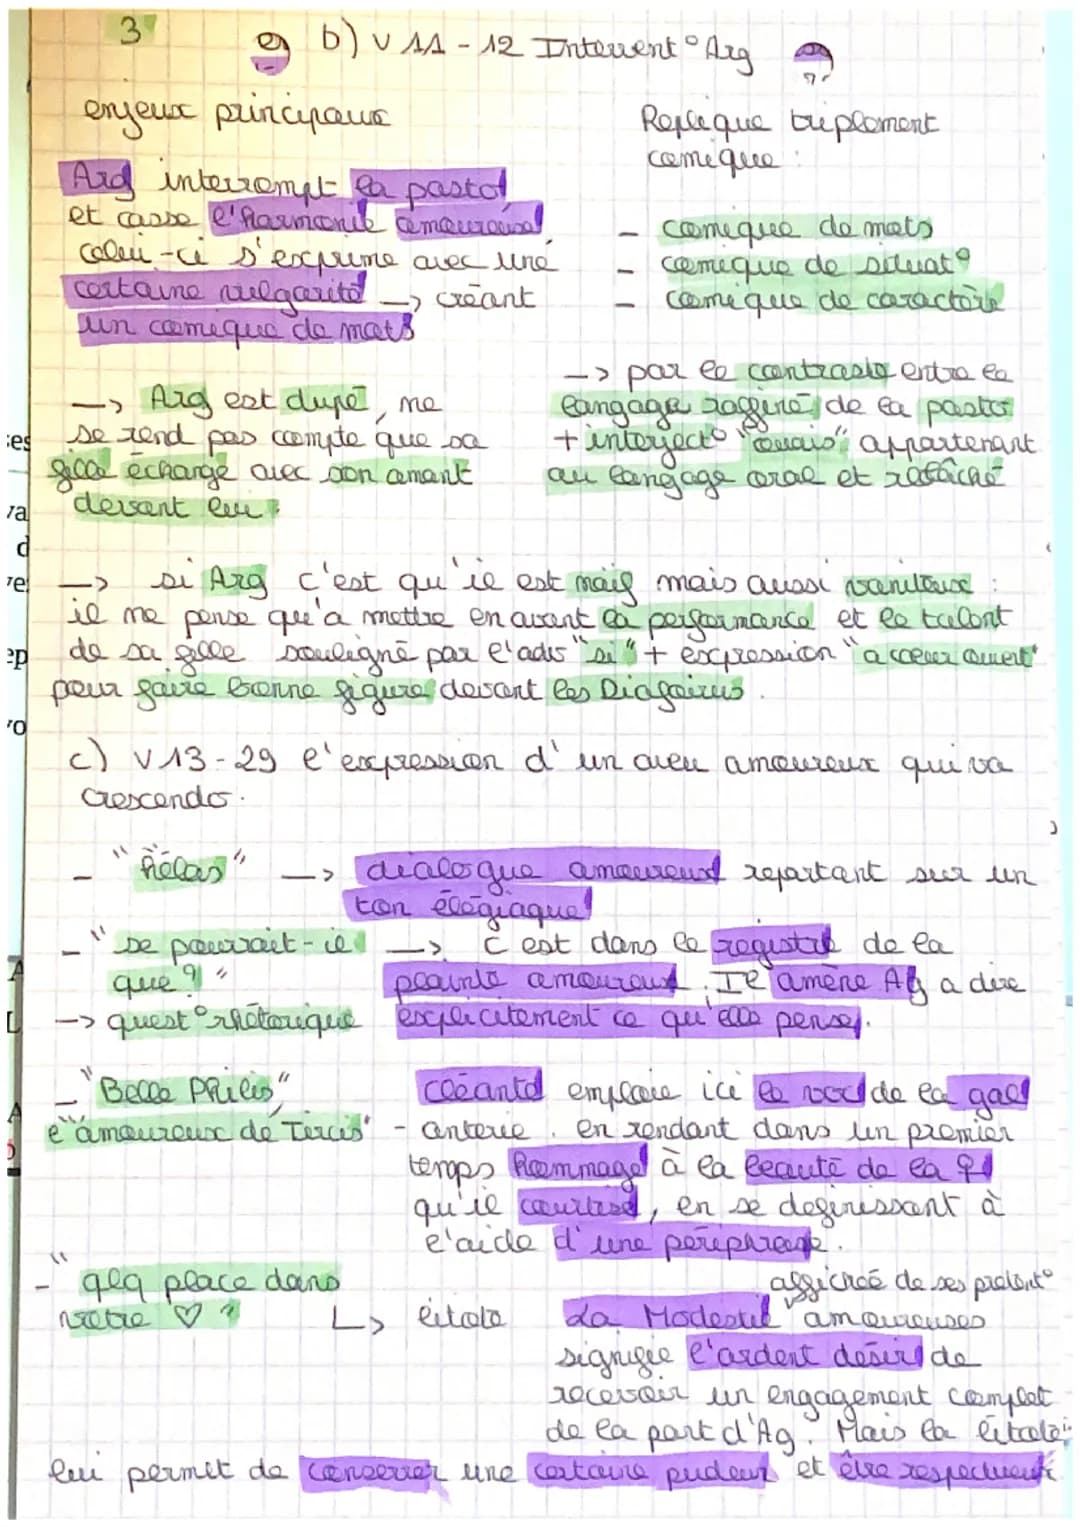 3
b) v 11 - 12 Intervent° Arg
enjeux principaux
Arg interrompt la pasto
et casse l'harmonie amoureuse
celui-ci s'exprime avec une
certaine vulgarité —> créant
un comique de mots
—> Arg est dupé, ne
se rend pas compte que sa
fille échange avec son amant
devant lui.
Replique triplement
comique :
- comique de mots
- comique de situat°
- comique de caractère
—> par le contraste entre le
langage raffiné de la pasto
+ interject° "ouais" appartenant
au langage oral et relâché
—> si Arg c'est qu'il est naïf mais aussi vaniteux :
il ne pense qu'a mettre en avant la performance et le talent
de sa fille souligné par l'adv "si" + expression "a coeur ouvert"
pour faire bonne figure devant les Diafoirus.
c) v 13 - 29 l'expression d'un aveu amoureux qui va
crescendo.
- "hélas" —> dialogue amoureux repartant sur un
ton élégiaque
- "se pourrait-il
que ?"
—> quest° rhétorique
—> c'est dans le registre de la
plainte amoureux. Il amène Ag a dire
explicitement ce qu'elle pense.
- "Belle Philis"
l'"amoureux de Tircis"
Cléante emploie ici le voc de la gal
- anterie. en rendant dans un premier
temps hommage à la beauté de la ♀
qu'il courtise, en se definissant à
l'aide d'une périphrase.
- "qlq place dans
votre ♡ ?
↳ litote
affichée de ses pretent°
La Modestie amoureuses
signifie l'ardent désir de
recevoir un engagement complet
de la part d'Ag. Mais la litote
lui permet de conserver une certaine pudeur et être respectueux
es
va
d
ve
ep
vo
A
L
A